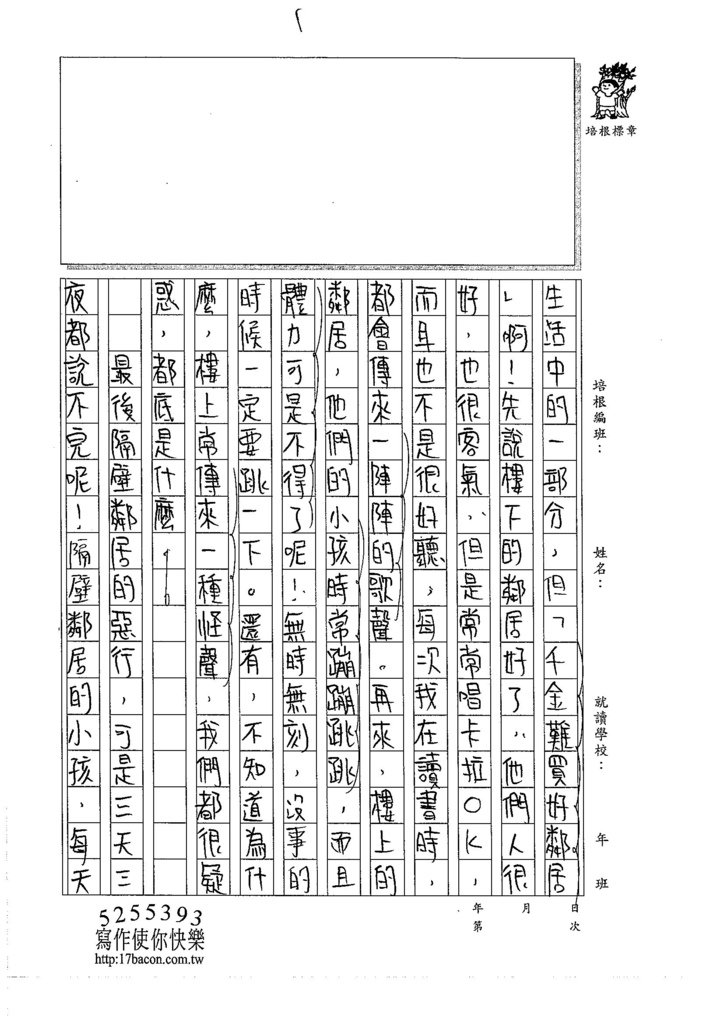 培根標章
培根編班：
姓名：
就讀學校：
年 班
年 月 日
第 次
生活中的一部分，但「千金難買好鄰居
」啊！先說樓下的鄰居好了，他們人很
好，也很客氣，但是常常唱卡拉OK，
而且也不是很好聽，每次我在讀書時，
都會傳來一陣陣的歌聲。再來，樓上的
鄰居，他們的小孩時常蹦蹦跳跳，而且
體力可是不得了呢！無時無刻，沒事的
時候一定要跳一下。還有，不知道為什
麼，樓上常傳來一種怪聲，我們都很疑
惑，都底是什麼……。
最後隔壁鄰居的惡行，可是三天三
夜都說不完呢！隔壁鄰居的小孩，每天
5255393
寫作使你快樂
http:17bacon.com.tw